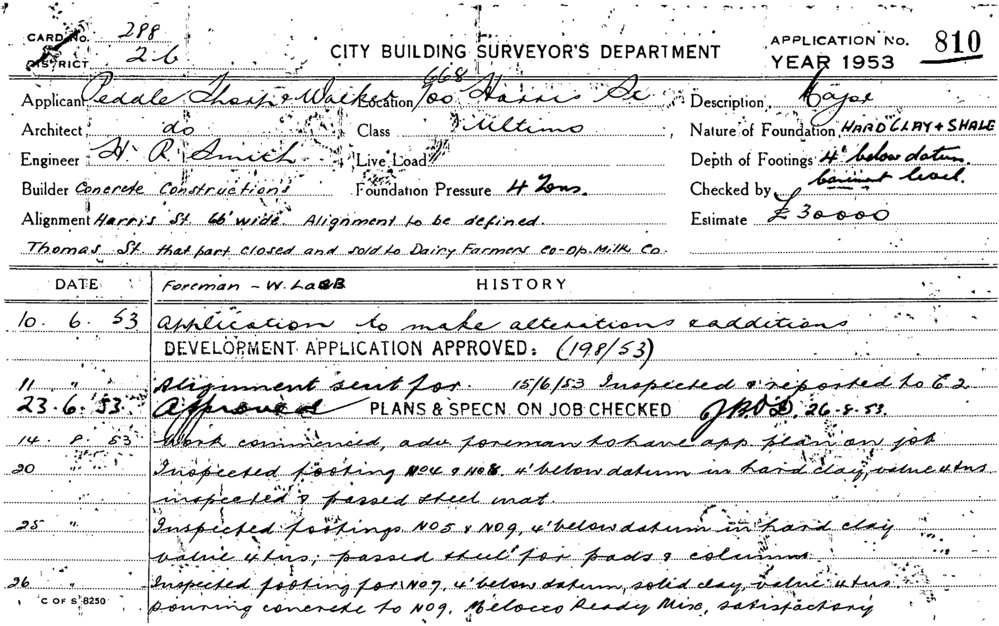 CARD No. 288
DISTRICT 26
CITY BUILDING SURVEYOR'S DEPARTMENT
APPLICATION No. 810
YEAR 1953
Applicant Peddle Thorp & Walker Location 668/700 Harris St Description Major
Architect do Class Ultimo Nature of Foundation HARD CLAY + SHALE
Engineer H. R. Smith Live Load Depth of Footings 4' below datum
Builder Concrete Constructions Foundation Pressure 4 Tons. Checked by level.
Alignment Harris St 66' wide. Alignment to be defined. Estimate £30000
Thomas St. that part closed and sold to Dairy Farmers Co-Op. Milk Co.
DATE Foreman - W. HISTORY
10. 6. 53 Application to make alterations & additions
DEVELOPMENT APPLICATION APPROVED: (198/53)
11 " Alignment sent for. 15/6/53 Inspected & reported to C.2
23.6.53 Approved PLANS & SPECN. ON JOB CHECKED 26.8.53.
14. 8. 53 Work commenced, adv foreman to have app plan on job
20 " Inspected footing No4 & No8. 4' below datum in hard clay, value 4 tns
inspected & passed steel mat
25 " Inspected footings No5 & No9, 4' below datum in hard clay
value 4 tns, passed steel for pads & columns
26 " Inspected footing for No7, 4' below datum, solid clay, value 4 tns
C OF S 8250 pouring concrete to No9, Melocco Ready Mix, satisfactory